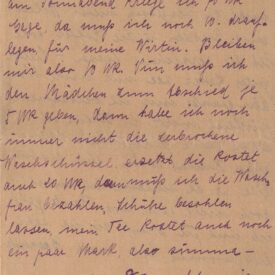 am Sonnabend kriege ich 70 Mk
Gage, da muß ich noch 10. drauf
legen, für meine Wirtin. Bleiben
mir also 10 Mk. Nun muß ich
den Mädchen zum Abschied je
5 Mk geben, dann habe ich noch
immer nicht die zerbrochene
Waschschüssel ersetzt die kostet
auch 20 Mk, dann muß ich die Wasch
frau bezahlen, Schuhe besohlen
lassen, mein Tee kostet auch noch
ein paar Mark, also summa –